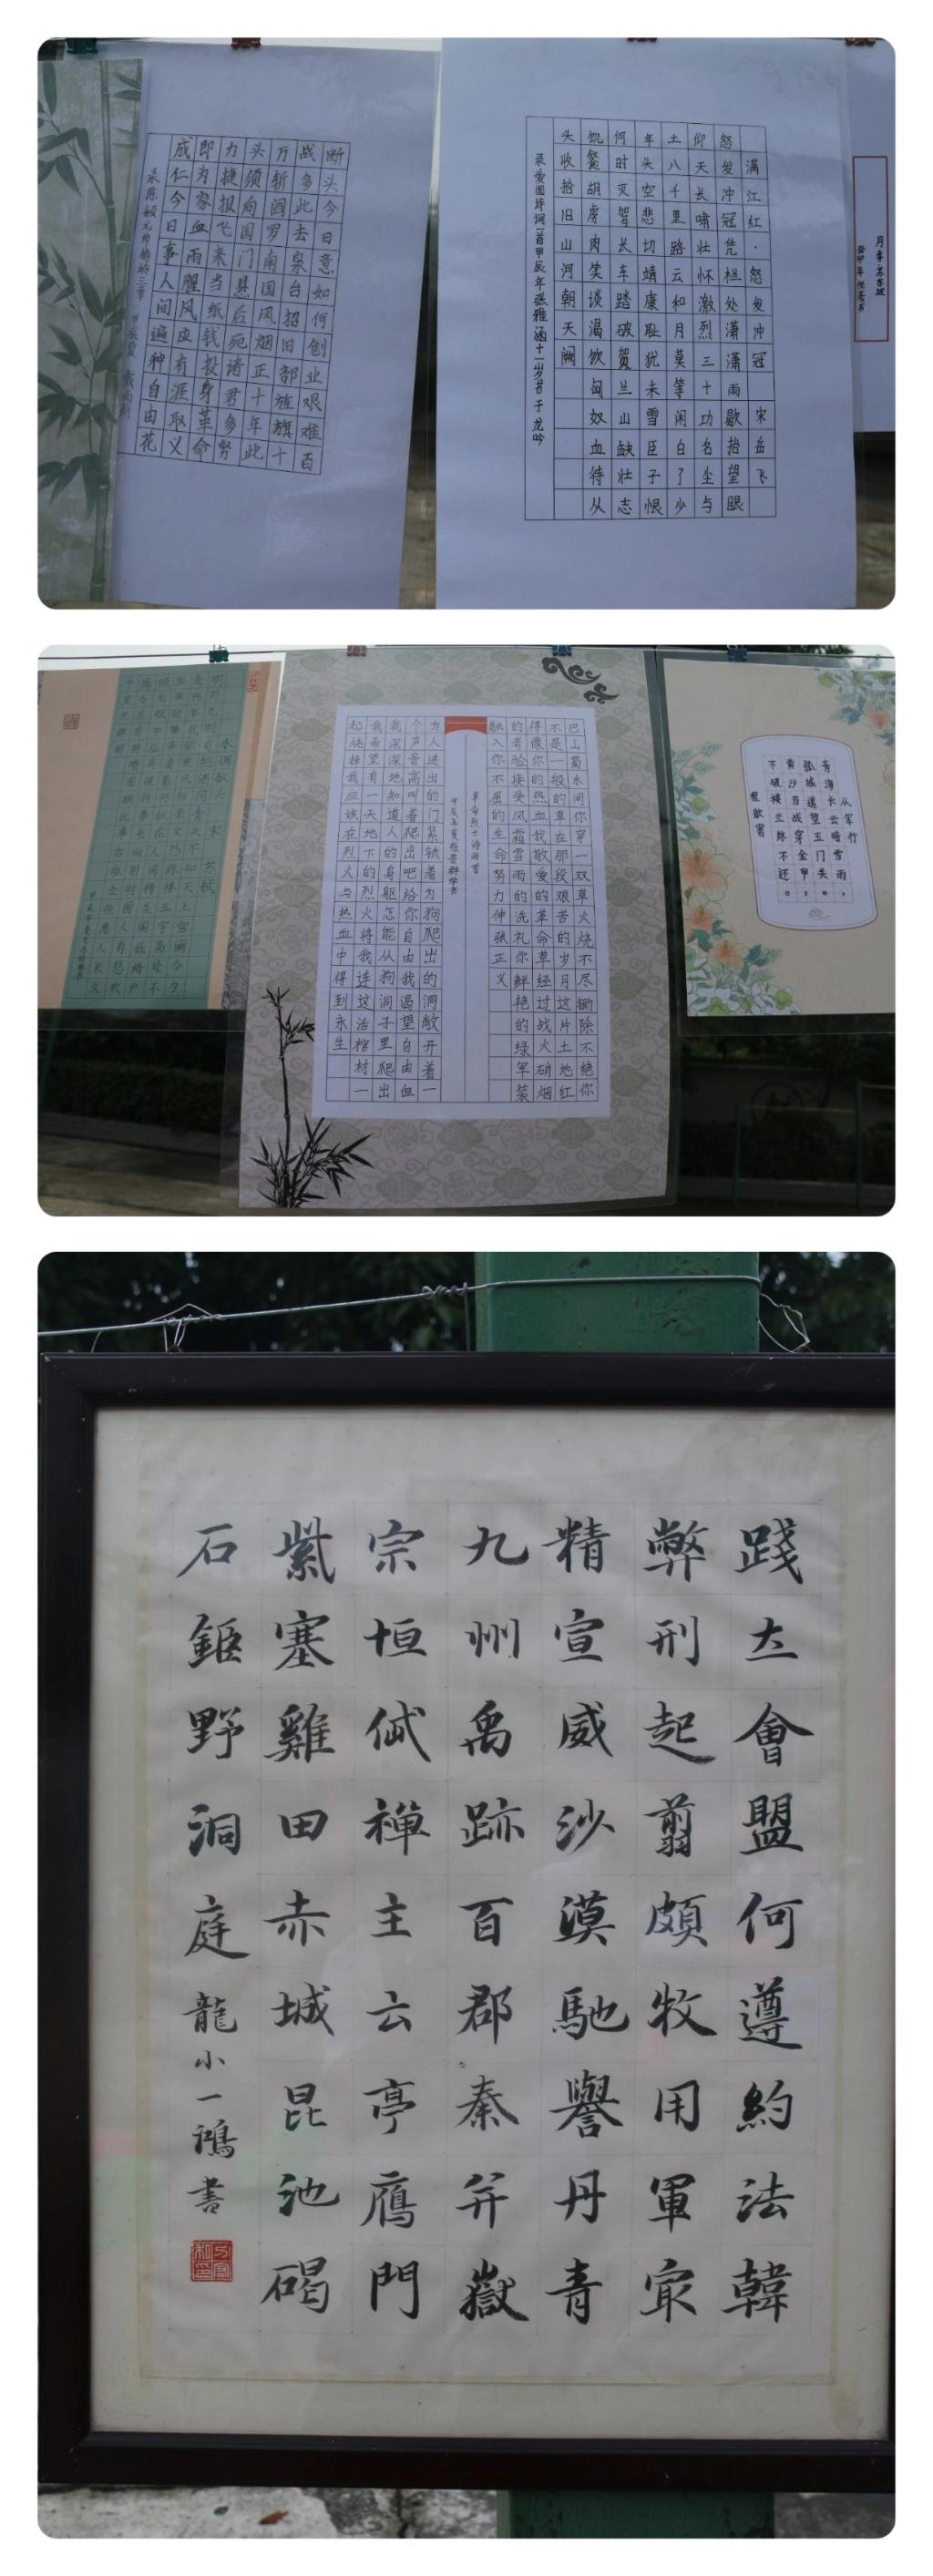 断头今日意如何创业艰难百
战多此去泉台招旧部旌旗十
万斩阎罗南国风烟正十年此
头须向国门悬后死诸君多努
力捷报飞来当纸钱投身革命
即为家血雨腥风应有涯取义
成仁今日事人间遍种自由花
录陈毅元帅梅岭三章
满江红·怒发冲冠 宋岳飞
怒发冲冠凭栏处潇潇雨歇抬望眼
仰天长啸壮怀激烈三十功名尘与
土八千里路云和月莫等闲白了少
年头空悲切靖康耻犹未雪臣子恨
何时灭驾长车踏破贺兰山缺壮志
饥餐胡虏肉笑谈渴饮匈奴血待从
头收拾旧山河朝天阙
录爱国诗词一首甲辰年张雅涵十一岁书于龙吟
月季苏东坡
水调歌头 宋 苏轼
巴山蜀水间你穿一双草火烧不尽锄除不绝你
不是一般的草在那段艰苦的岁月这片土地红
得像你的热血我敬爱的革命草经过战火硝烟
的考验接受风霜雪雨的洗礼你鲜艳的绿军装
融入你不屈的生命努力伸张正义
革命烈士诗两首
为人进出的门紧锁着为狗爬出的洞敞开着一
个声音高叫着爬出吧给你自由我渴望自由
我深深地知道人的身躯怎能从狗洞子里爬出
我希望有一天地下的烈火将我连这活棺材一
起烧掉我应该在烈火与热血中得到永生
从军行
青海长云暗雪
孤城遥望玉门关。
黄沙百战穿金甲，
不破楼兰终不还。
踐土會盟何遵約法韓
弊刑起翦頗牧用軍最
精宣威沙漠馳譽丹青
九州禹跡百郡秦并嶽
宗恒岱禪主云亭鴈門
紫塞雞田赤城昆池碣
石鉅野洞庭龍小一鴻書